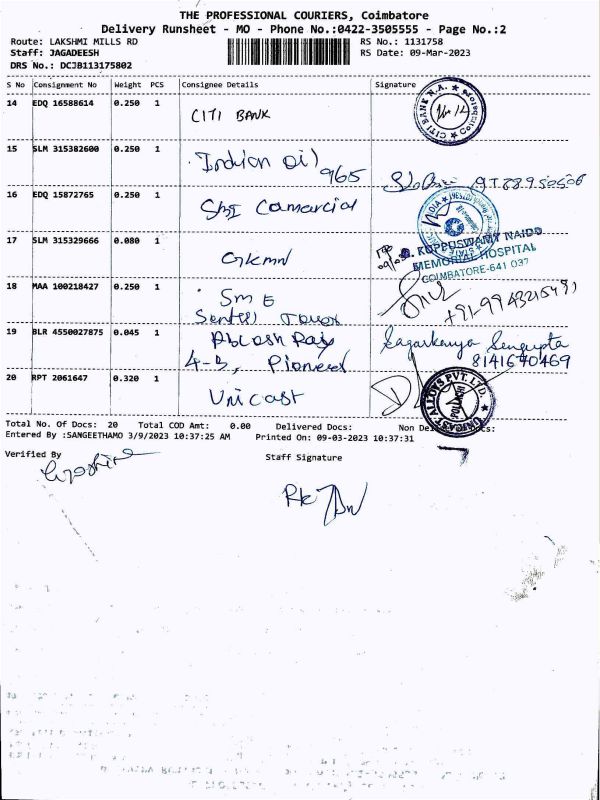 THE PROFESSIONAL COURIERS, Coimbatore
Delivery Runsheet - MO - Phone No.:0422-3505555 - Page No.:2
Route: LAKSHMI MILLS RD RS No.: 1131758
Staff: JAGADEESH RS Date: 09-Mar-2023
DRS No.: DCJB113175802
S No Consignment No Weight PCS Consignee Details Signature
14 EDQ 16588614 0.250 1 CITI BANK
CITI BANK N.A. Coimbatore
15 SLM 315382600 0.250 1 Indian Oil
965
16 EDQ 15872765 0.250 1 Sbi Comarcial
17 SLM 315329666 0.080 1 GKMN
G. KUPPUSWAMY NAIDU
MEMORIAL HOSPITAL
COIMBATORE-641 037
18 MAA 100218427 0.250 1 SME
Senthil Tower
19 BLR 4550027875 0.045 1
4-B, Pioneed
8141670469
20 RPT 2061647 0.320 1 Unicast
UNICAST ALLOYS PVT. LTD.
Total No. Of Docs: 20 Total COD Amt: 0.00 Delivered Docs:
Entered By :SANGEETHAMO 3/9/2023 10:37:25 AM Printed On: 09-03-2023 10:37:31
Verified By Staff Signature